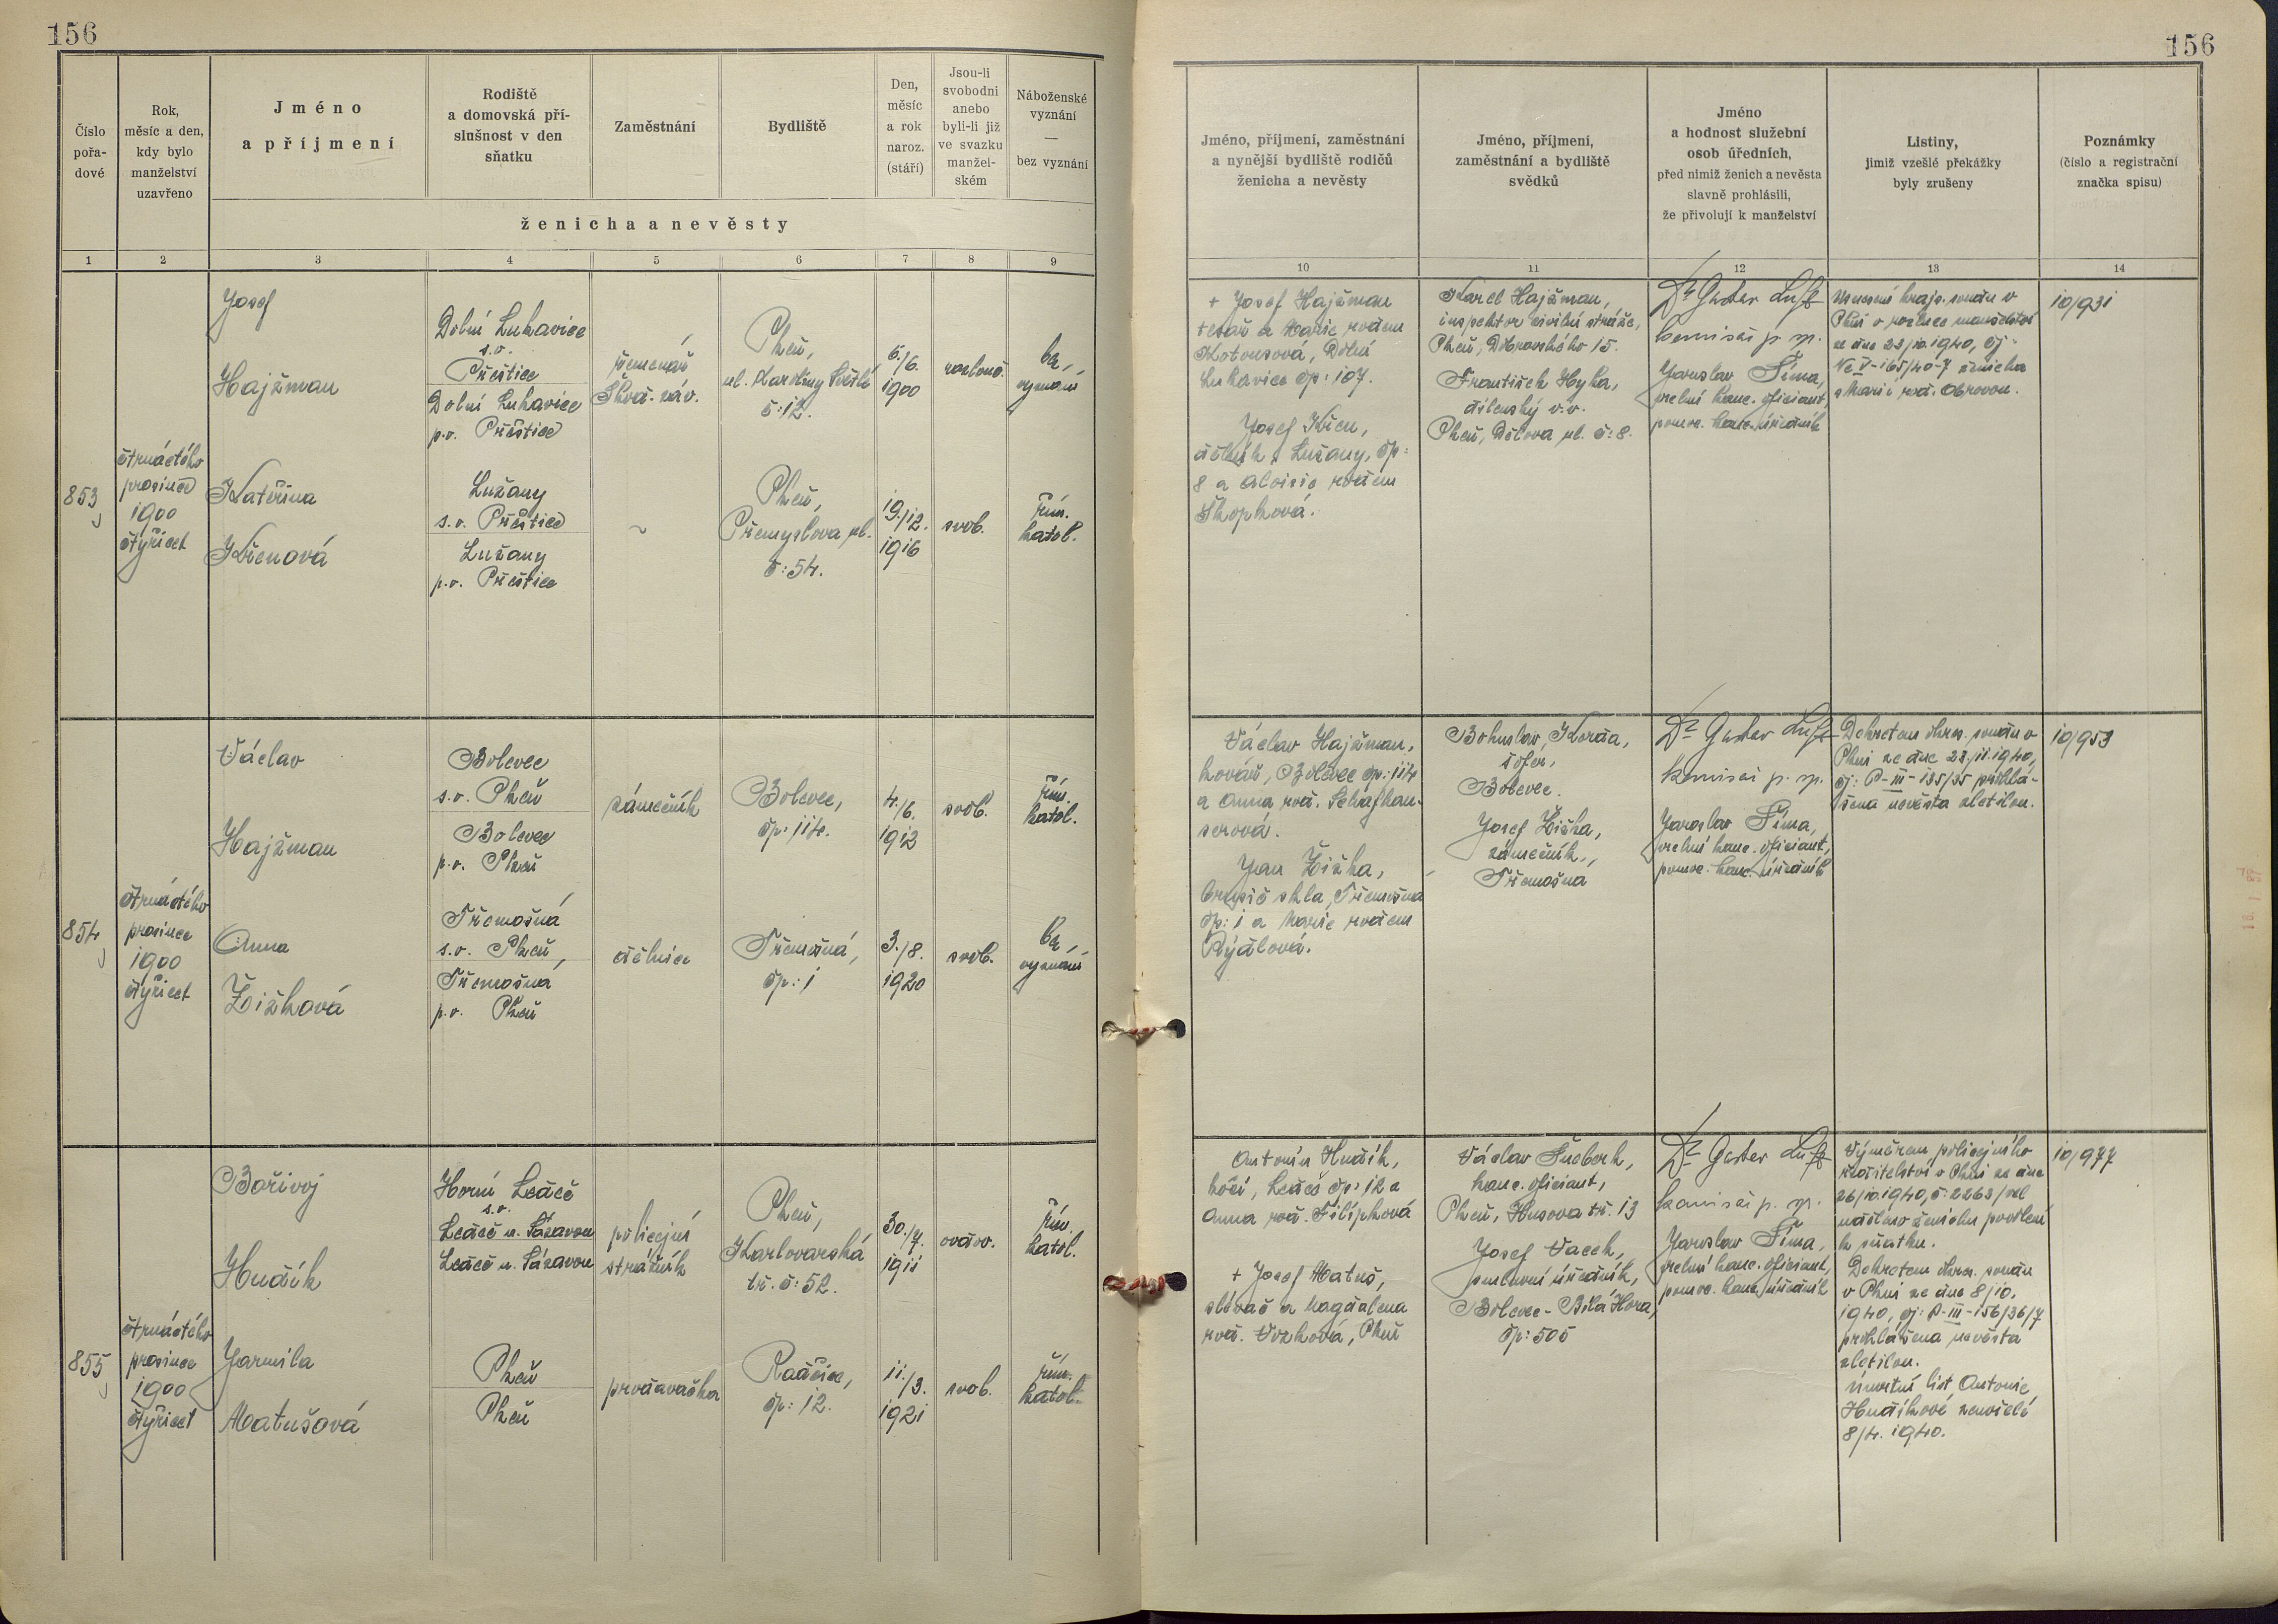 156
156
Číslo
pořa-
dové
Rok,
měsíc a den,
kdy bylo
manželství
uzavřeno
Jméno
a příjmení
Rodiště
a domovská pří-
slušnost v den
sňatku
Zaměstnání
Bydliště
Den,
měsíc
a rok
naroz.
(stáří)
Jsou-li
svobodni
anebo
byli-li již
ve svazku
manžel-
ském
Náboženské
vyznání
—
bez vyznání
ženicha a nevěsty
1 2 3 4 5 6 7 8 9
Jméno, příjmení, zaměstnání
a nynější bydliště rodičů
ženicha a nevěsty
Jméno, příjmení,
zaměstnání a bydliště
svědků
Jméno
a hodnost služební
osob úředních,
před nimiž ženich a nevěsta
slavně prohlásili,
že přivolují k manželství
Listiny,
jimiž vzešlé překážky
byly zrušeny
Poznámky
(číslo a registrační
značka spisu)
10 11 12 13 14
853
čtrnáctého
prosince
1900
čtyřicet
Josef
Hajžman
Dolní Lukavice
s.o.
Přeštice
Dolní Lukavice
p.o. Přeštice
řemenář
Škod. záv.
Plzeň,
ul. Karoliny Světlé
č: 12.
6./6.
1900
rozlouč.
bez
vyznání
Kateřina
Křenová
Lužany
s.o. Přeštice
Lužany
p.o. Přeštice
~
Plzeň,
Přemyslova ul.
č: 54.
19./12.
1916
svob.
řím.
katol.
+ Josef Hajžman
tesař a Marie rozem
Kotousová, Dolní
Lukavice čp: 107.
Josef Křen,
dělník, Lužany, čp:
8 a Aloisie rozem
Škopková.
Karel Hajžman,
inspektor civilní stráže,
Plzeň, Dobrovského 15.
František Hyka,
dílenský v.v.
Plzeň, Děčova ul. č: 8.
Dr. Gustav Luft
komisař p. sp.
Jaroslav Šíma,
zvelní kanc. oficiant,
pomoc. kanc. úředník
Usnesení krajs. soudu v
Plzni o rozluce manželství
ze dne 23/10. 1940, čj:
Nc V-165/40-7 ženicha
s Marií roz. Obrovou.
10/931
854
čtrnáctého
prosince
1900
čtyřicet
Václav
Hajžman
Bolevec
s.o. Plzeň
Bolevec
p.o. Plzeň
zámečník
Bolevec,
čp: 114.
4./6.
1912
svob.
řím.
katol.
Anna
Žižková
Třemošná
s.o. Plzeň,
Třemošná
p.o. Plzeň
dělnice
Třemošná,
čp: 1
3./8.
1920
svob.
bez
vyznání
Václav Hajžman,
kovář, Bolevec čp: 114
a Anna roz. Schafhau-
serová.
Jan Žižka,
brusič skla, Třemošná
čp: 1 a Marie rozem
Rýdlová.
Bohuslav Korda,
šofer,
Bolevec.
Josef Žižka,
zámečník,
Třemošná
Dr. Gustav Luft
komisař p. sp.
Jaroslav Šíma,
kanc. oficiant,
pomoc. kanc. úředník
Dekretem okres. soudu v
Plzni ze dne 23/11. 1940,
čj: P-III-135/35 prohlá-
šena nevěsta zletilou.
10/953
855
čtrnáctého
prosince
1900
čtyřicet
Bořivoj
Hudík
Horní Ledeč
s.o.
Ledeč n. Sázavou
Ledeč n. Sázavou
policejní
strážník
Plzeň,
Karlovarská
tř. č: 52.
30./7.
1911
ovdov.
řím.
katol.
Jarmila
Matušová
Plzeň
Plzeň
prodavačka
Radčice,
čp: 12.
11./3.
1921
svob.
řím.
katol.
Antonín Hudík,
kočí, Ledeč čp: 12 a
Anna roz. Filípková
+ Josef Matuš,
slévač a Magdalena
roz. Vozková, Plzeň
Václav Šneberk,
kanc. oficiant,
Plzeň, Husova tř. 13
Josef Vacek,
smluvní úředník,
Bolevec - Bílá Hora,
čp: 505
Dr. Gustav Luft
komisař p. sp.
Jaroslav Šíma,
kanc. oficiant,
pomoc. kanc. úředník
Výměrem policejního
ředitelství v Plzni ze dne
26/10. 1940, č: 2263/
uděleno ženichu povolení
k sňatku.
Dekretem okres. soudu
v Plzni ze dne 8/10.
1940, čj: P-III-156/36/7
prohlášena nevěsta
zletilou.
Úmrtní list Antonie
Hudíkové zemřelé
8/4. 1940.
10/977